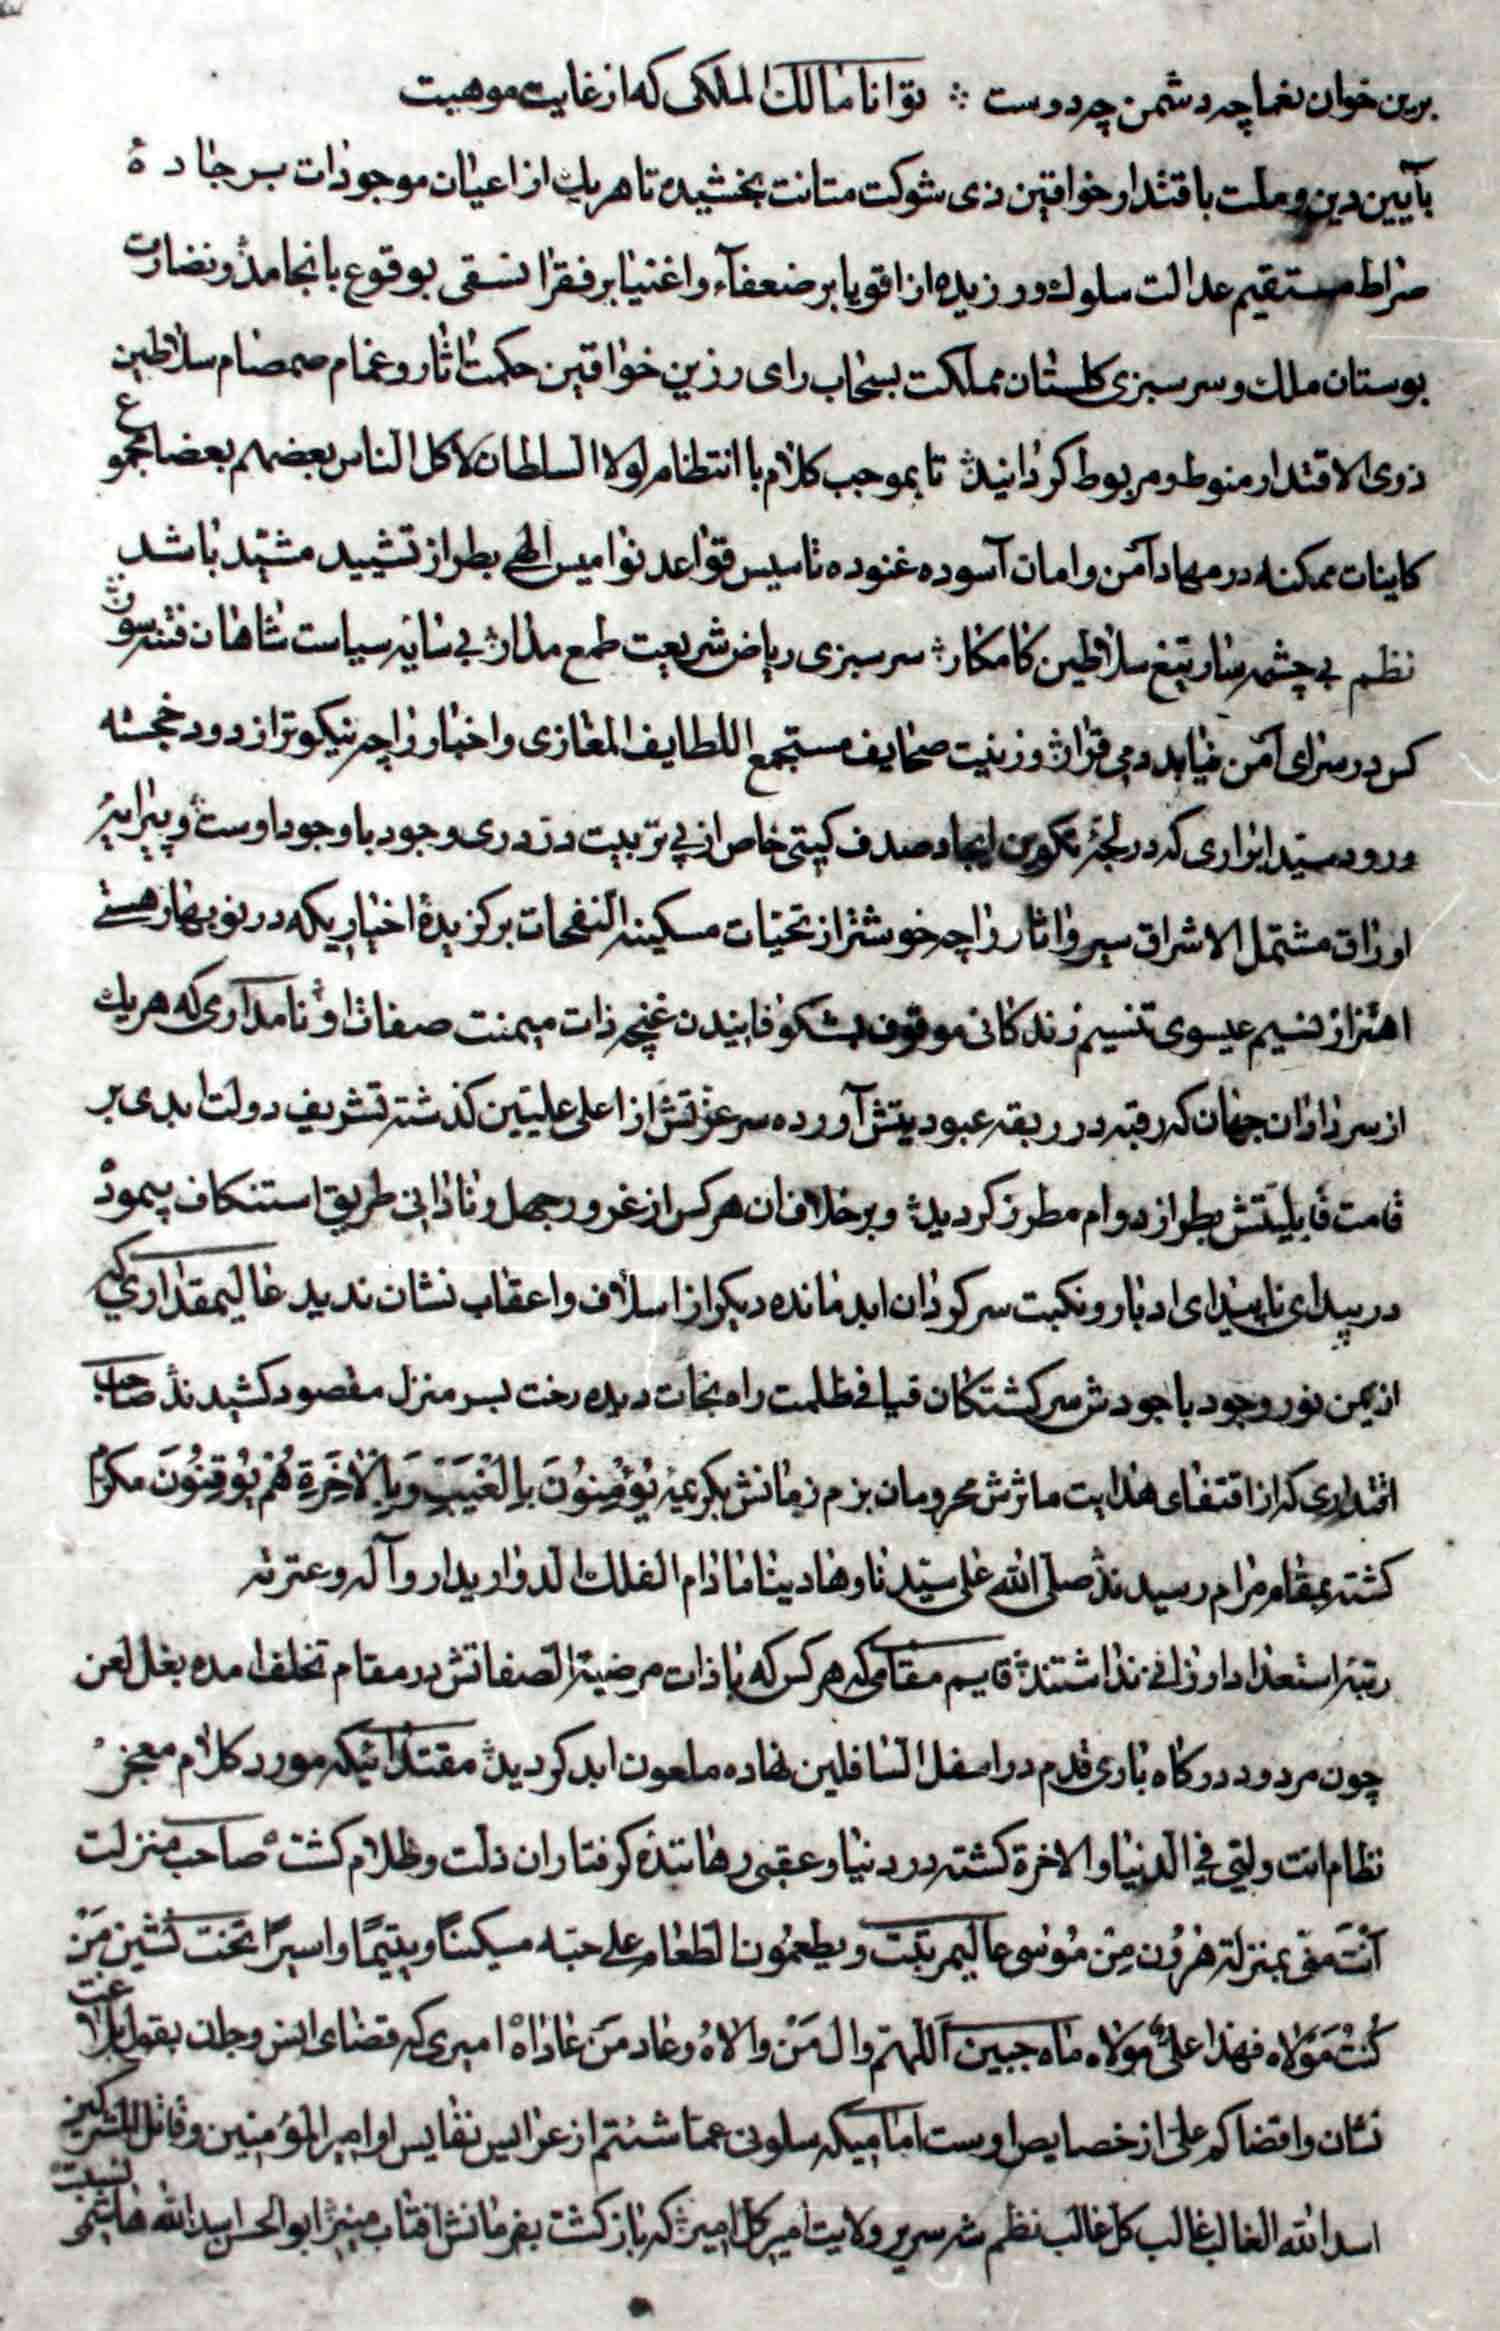 برین خوان یغما چه دشمن چه دوست ؞ توانا مالك الملکی که از غایت موهبت
بآیین دین و ملت باقتدار خواقین ذی شوکت متانت بخشیده تا هریك از اعیان موجودات بر جادۀ
صراط مستقیم عدالت سلوك ورزیده از اقویا بر ضعفآء و اغنیا بر فقرا نسقی بوقوع بانجامد و نضارت
بوستان ملك و سرسبزی کلستان مملکت بسحاب رای رزین خواقین حکمت اثار و غمام صمصام سلاطین
ذوی الاقتدار منوط و مربوط کردانید تا بموجب کلام با انتظام لولا السلطان لاکل الناس بعضهم بعضا مجموع
کاینات ممکنه در مهاد آمن و امان آسوده غنوده تاسیس قواعد نوامیس الهی بطراز تشیید مشید باشد
نظم بی چشمه سار تیغ سلاطین کامکار سرسبزی ریاض شریعت طمع مدار بی سایه سیاست شاهان فتنه سوز
کس در سرای آمن نیابد دمی قرار و زینت صحایف مستجمع اللطایف المغازی و اخبار را چه نیکوتر از درود خجسته
ورود سید ابراری که در لجۀ تکوین ایجاد صدف کیتی خاص از پی تربیت در دری وجود با وجود اوست و پیرایۀ
اوراق مشتمل الاشراق سیر و اثار را چه خوشتر از تحیات مسکینه النفحات برکزیدۀ اخیاریکه در نوبهار هستی
اهتزاز نسیم عیسوی تنسیم زندکانی موقوف بشکوفانیدن غنچه ذات میمنت صفات او نامداری که هریك
از سرداران جهان که رقبه در ربقه عبودیتش آورده سر عزتش از اعلی علیین کذشته تشریف دولت ابدی بر
قامت قابلیتش بطراز دوام مطرز کردید و برخلاف ان هر کس از غرور جهل و نادانی طریق استنکاف پیمود
در بیدای ناپیدای ادبار و نکبت سرکردان ابد مانده دیکر از اسلاف و اعقاب نشان ندید عالیمقداری که
از یمن نور وجود با جودش سرکشتکان فیافی ظلمت راه نجات دیده رخت بسر منزل مقصود کشیدند صاحب
اقتداری که از اقتفای هدایت ماثرش محرومان بزم زمانش بکریمۀ يُؤْمِنُونَ بِالْغَيْبِ وَبِالْآخِرَةِ هُمْ يُوقِنُونَ مکرم
کشته بمقام مرام رسیدند صلی الله علی سیدنا و هادینا ما دام الفلك الدوار یدار و آله و عترته
رتبه استعداد ارزانی نداشتند قایم مقامی که هر کس که با ذات مرضیة الصفاتش در مقام تخلف امده بغل لعن
چون مردود درکاه باری قدم در اسفل السافلین نهاده ملعون ابد کردید مقتدائیکه مورد کلام معجز
نظام انت ولیی فی الدنیا و الاخرة کشته در دنیا و عقبی رهانندۀ کرفتاران ذلت و ظلام کشت صاحب منزلت
اَنْتَ منی بمنزلة هرون من موسی عالیمرتبت و یطعمون الطعام علی حبه مسکینا و یتیما و اسیرا تخت نشین مَن
کُنْتُ مَوْلاه فهذا علی مولاه ماه جبین اللهم وال مَنْ والاهُ و عاد من عاداهُ امیری که قضای انس و جان بقول بلاغت
نشان و اقضاکم علی از خصایص اوست امامیکه سلونی عما شئتم از عرایس نفایس او امیر المؤمنین و قاتل المشرکین
اسد الله الغالب غالب کل غالب نظم شه سریر ولایت امیر کل امیر که بازکشت بفرمانش افتاب منیر ابو الحسن اسد الله هاشمی نسبت